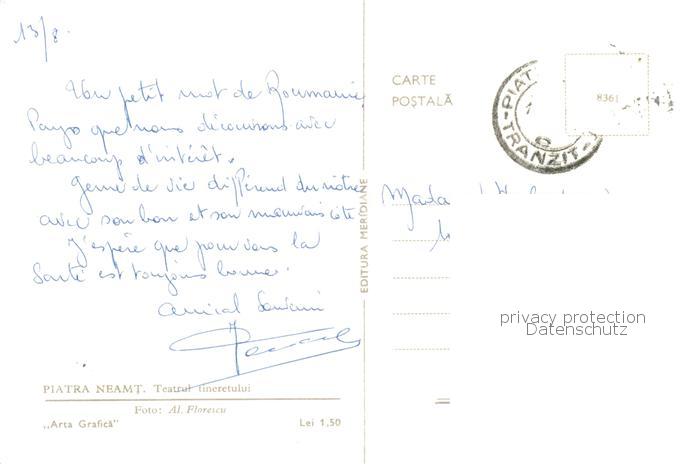 13/8.
Un petit mot de Roumanie
Pays que nous découvrons avec
beaucoup d'intérêt.
Genre de vie différend du nôtre
avec son bon et son mauvais côté
J'espère que pour vous la
Santé est toujours bonne.
Amical Souvenir
PIATRA NEAMȚ. Teatrul tineretului
Foto: Al. Florescu
„Arta Grafică”
Lei 1,50
EDITURA MERIDIANE
CARTE
POȘTALĂ
PIAT
TRANZIT
8361
Mada
privacy protection
Datenschutz